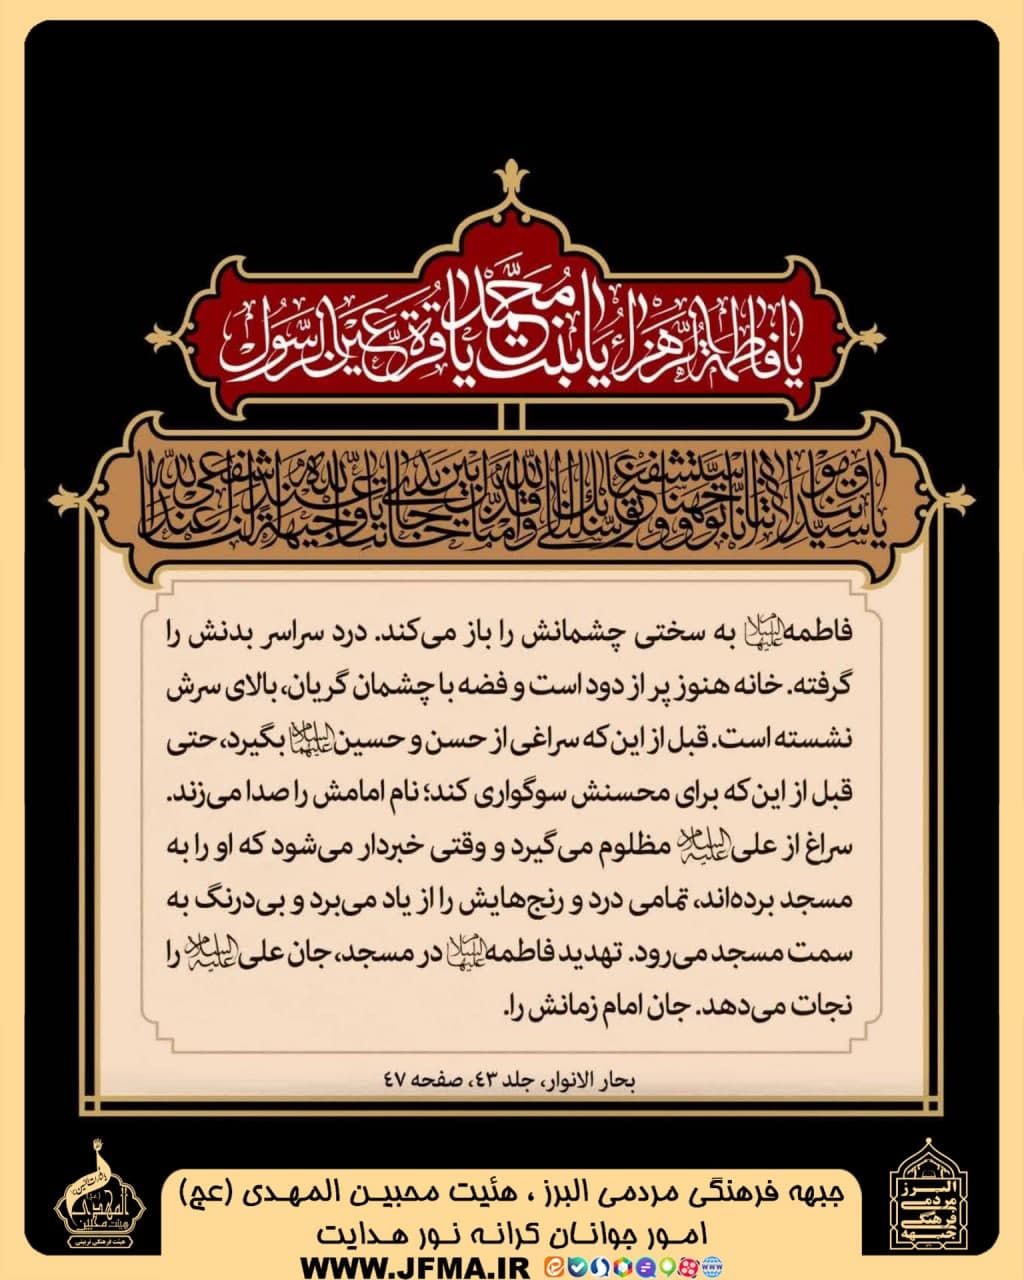 يا فاطمة الزهراء يا بنت محمد يا قرة عين الرسول
يا سيدتنا ومولاتنا انا توجهنا واستشفعنا وتوسلنا بك الى الله وقدمناك بين يدي حاجاتنا يا وجيهة عند الله اشفعي لنا عند الله
فاطمه علیهاالسلام به سختی چشمانش را باز می‌کند. درد سراسر بدنش را
گرفته. خانه هنوز پر از دود است و فضه با چشمان گریان، بالای سرش
نشسته است. قبل از این‌که سراغی از حسن و حسین علیهماالسلام بگیرد، حتی
قبل از این‌که برای محسنش سوگواری کند؛ نام امامش را صدا می‌زند.
سراغ از علی علیه‌السلام مظلوم می‌گیرد و وقتی خبردار می‌شود که او را به
مسجد برده‌اند، تمامی درد و رنج‌هایش را از یاد می‌برد و بی‌درنگ به
سمت مسجد می‌رود. تهدید فاطمه علیهاالسلام در مسجد، جان علی علیه‌السلام را
نجات می‌دهد. جان امام زمانش را.
بحار الانوار، جلد ٤٣، صفحه ٤٧
جبهه فرهنگی مردمی البرز ، هئیت محبین المهدی (عج)
امور جوانان کرانه نور هدایت
WWW.JFMA.IR
البرز
مردمی
فرهنگی
جبهه
المهدی
هیئت محبین
هیئت فرهنگی تربیتی